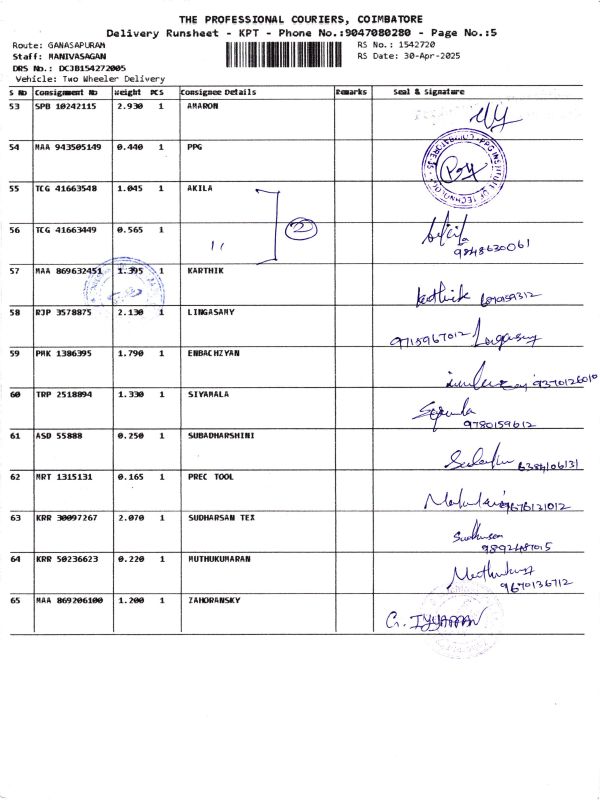 THE PROFESSIONAL COURIERS, COIMBATORE
Delivery Runsheet - KPT - Phone No.:9047080280 - Page No.:5
Route: GANASAPURAM RS No.: 1542720
Staff: MANIVASAGAN RS Date: 30-Apr-2025
DRS No.: DCJB154272005
Vehicle: Two Wheeler Delivery
S No Consignment No Weight PCS Consignee Details Remarks Seal & Signature
53 SPB 10242115 2.930 1 AMARON
54 MAA 943505149 0.440 1 PPG
55 TCG 41663548 1.045 1 AKILA
56 TCG 41663449 0.565 1 11 2
9843630061
57 MAA 869632451 1.395 1 KARTHIK
Karthik
58 RJP 3578875 2.130 1 LINGASAMY
9715967012 Lingasamy
59 PMK 1386395 1.790 1 ENBACHZYAN
9370126010
60 TRP 2518894 1.330 1 SIYAMALA
9780159612
61 ASD 55888 0.250 1 SUBADHARSHINI
6384106131
62 MRT 1315131 0.165 1 PREC TOOL
9676131012
63 KRR 30097267 2.070 1 SUDHARSAN TEX
Sudharsan
9892487015
64 KRR 50236623 0.220 1 MUTHUKUMARAN
9670136712
65 MAA 869206100 1.200 1 ZAHORANSKY
G. IYYAPPAN